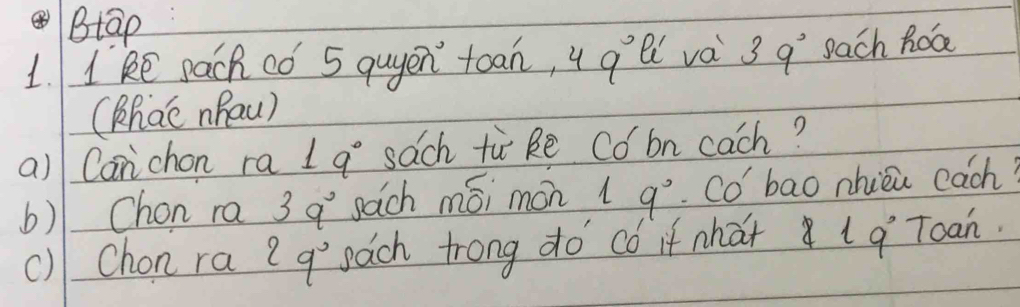 ⊛ Btập :
1. 1 kệ sách có 5 quyển toán, 4 q° lí và 3 q° sách hóa
(khác nhau)
a) Cần chọn ra 1 q° sách từ kệ. Có bn cách?
b) Chọn ra 3 q° sách mỗi môn 1 q°. Có bao nhiêu cách?
c) Chọn ra 2 q° sách trong đó có ít nhất 1 q° Toán.